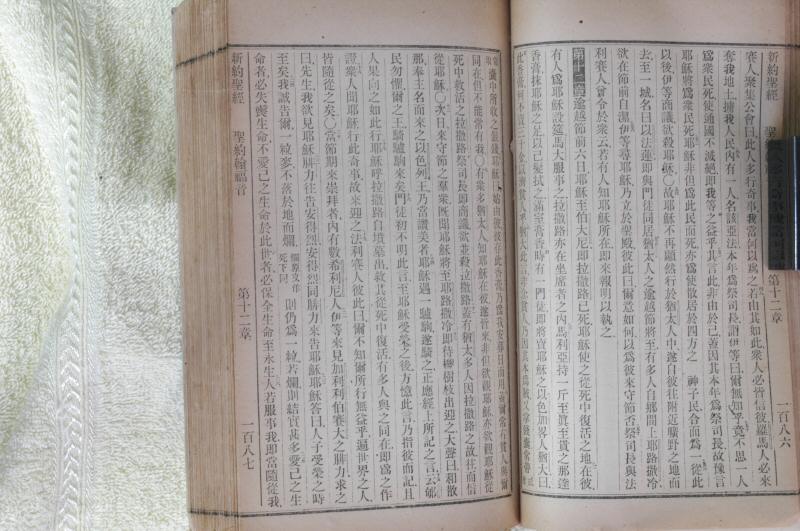 新約聖經 聖約翰福音 第十二章 一百八六
賽人聚集公會曰此人多行奇事我當何以爲之若任其如此衆人必皆信彼羅馬人必來
奪我地土擄我人民內有一人名該亞法本年爲祭司長謂伊等曰爾無知乎竟不思一人
爲衆民死使通國不滅絕即我等之益乎其言此非由於己蓋因其本年爲祭司長故豫言
耶穌將爲衆民死耶穌非但爲此民而死亦爲使散居於四方之 神子民合而爲一從此
以後伊等商議欲殺耶穌○故耶穌不再顯然行於猶太人中遂自彼往附近曠野之地而
去至一城名曰以法蓮即與門徒同居猶太人之逾越節將至有多人自鄉間上耶路撒冷
欲在節前自潔伊等尋耶穌乃立於聖殿彼此曰爾意如何以爲彼來守節否祭司長與法
利賽人曾令於衆云若有人知耶穌所在即來報明以執之
第十二章逾越節前六日耶穌至伯大尼即拉撒路已死耶穌使之從死中復活之地在彼
有人爲耶穌設筵馬大服事之拉撒路亦在坐席者之內馬利亞持一斤至眞至貴之那達
香膏抹耶穌之足以己髮拭之滿室膏香時有一門徒即將賣耶穌之以色加畧人猶大曰
同在但不能常有我○有衆多猶太人知耶穌在彼遂皆來非但欲觀耶穌亦欲觀耶穌從
死中救活之拉撒路祭司長即商議欲並殺拉撒路蓋有猶太多人因拉撒路之故往而信
從耶穌○次日來守節之羣衆既聞耶穌將至耶路撒冷即持椰樹枝出迎之大聲曰和散
那奉主名而來之以色列王乃當讚美者耶穌遇一驢駒遂騎之正應經上所記之言云郇
民勿懼爾之王騎驢駒來矣門徒初不明此言至耶穌受榮之後方憶此言乃指彼而記且
人果向之如此行耶穌呼拉撒路自墳墓出救其從死中復活有多人與之同在即爲之作
證衆人聞耶穌行此奇事故來迎之法利賽人彼此曰爾不知爾所行無益乎遍世界之人
皆隨從之矣○當節期來崇拜者內有數希利尼人伊等來見加利利伯賽大之腓力求之
曰先生我欲見耶穌腓力往告安得烈安得烈同腓力來告耶穌耶穌答曰人子受榮之時
至矣我誠告爾一粒麥不落於地而爛爛原文作死下同則仍爲一粒若爛則結實甚多愛己之生
命者必失喪生命不愛己之生命於此世者必保全生命至永生人若服事我即當隨從我
新約聖經 聖約翰福音 第十二章 一百八七